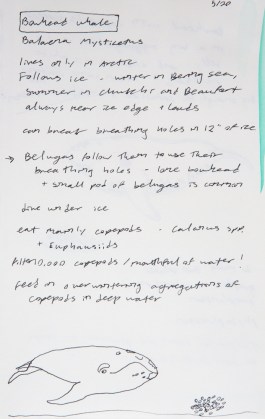 5/20
Bowhead whale
Balaena Mysticetus
lives only in Arctic
Follows ice - winter in Bering sea,
summer in chukchi and Beaufort
always near ice edge + leads
can break breathing holes in 12" of ice
→ Belugas follow them to use their
breathing holes - lone bowhead
+ small pod of belugas is common
dive under ice
eat mainly copepods - Calanus spp.
+ Euphausiids
10,000 copepods / mouthful of water!
feed on overwintering aggregations of
copepods in deep water